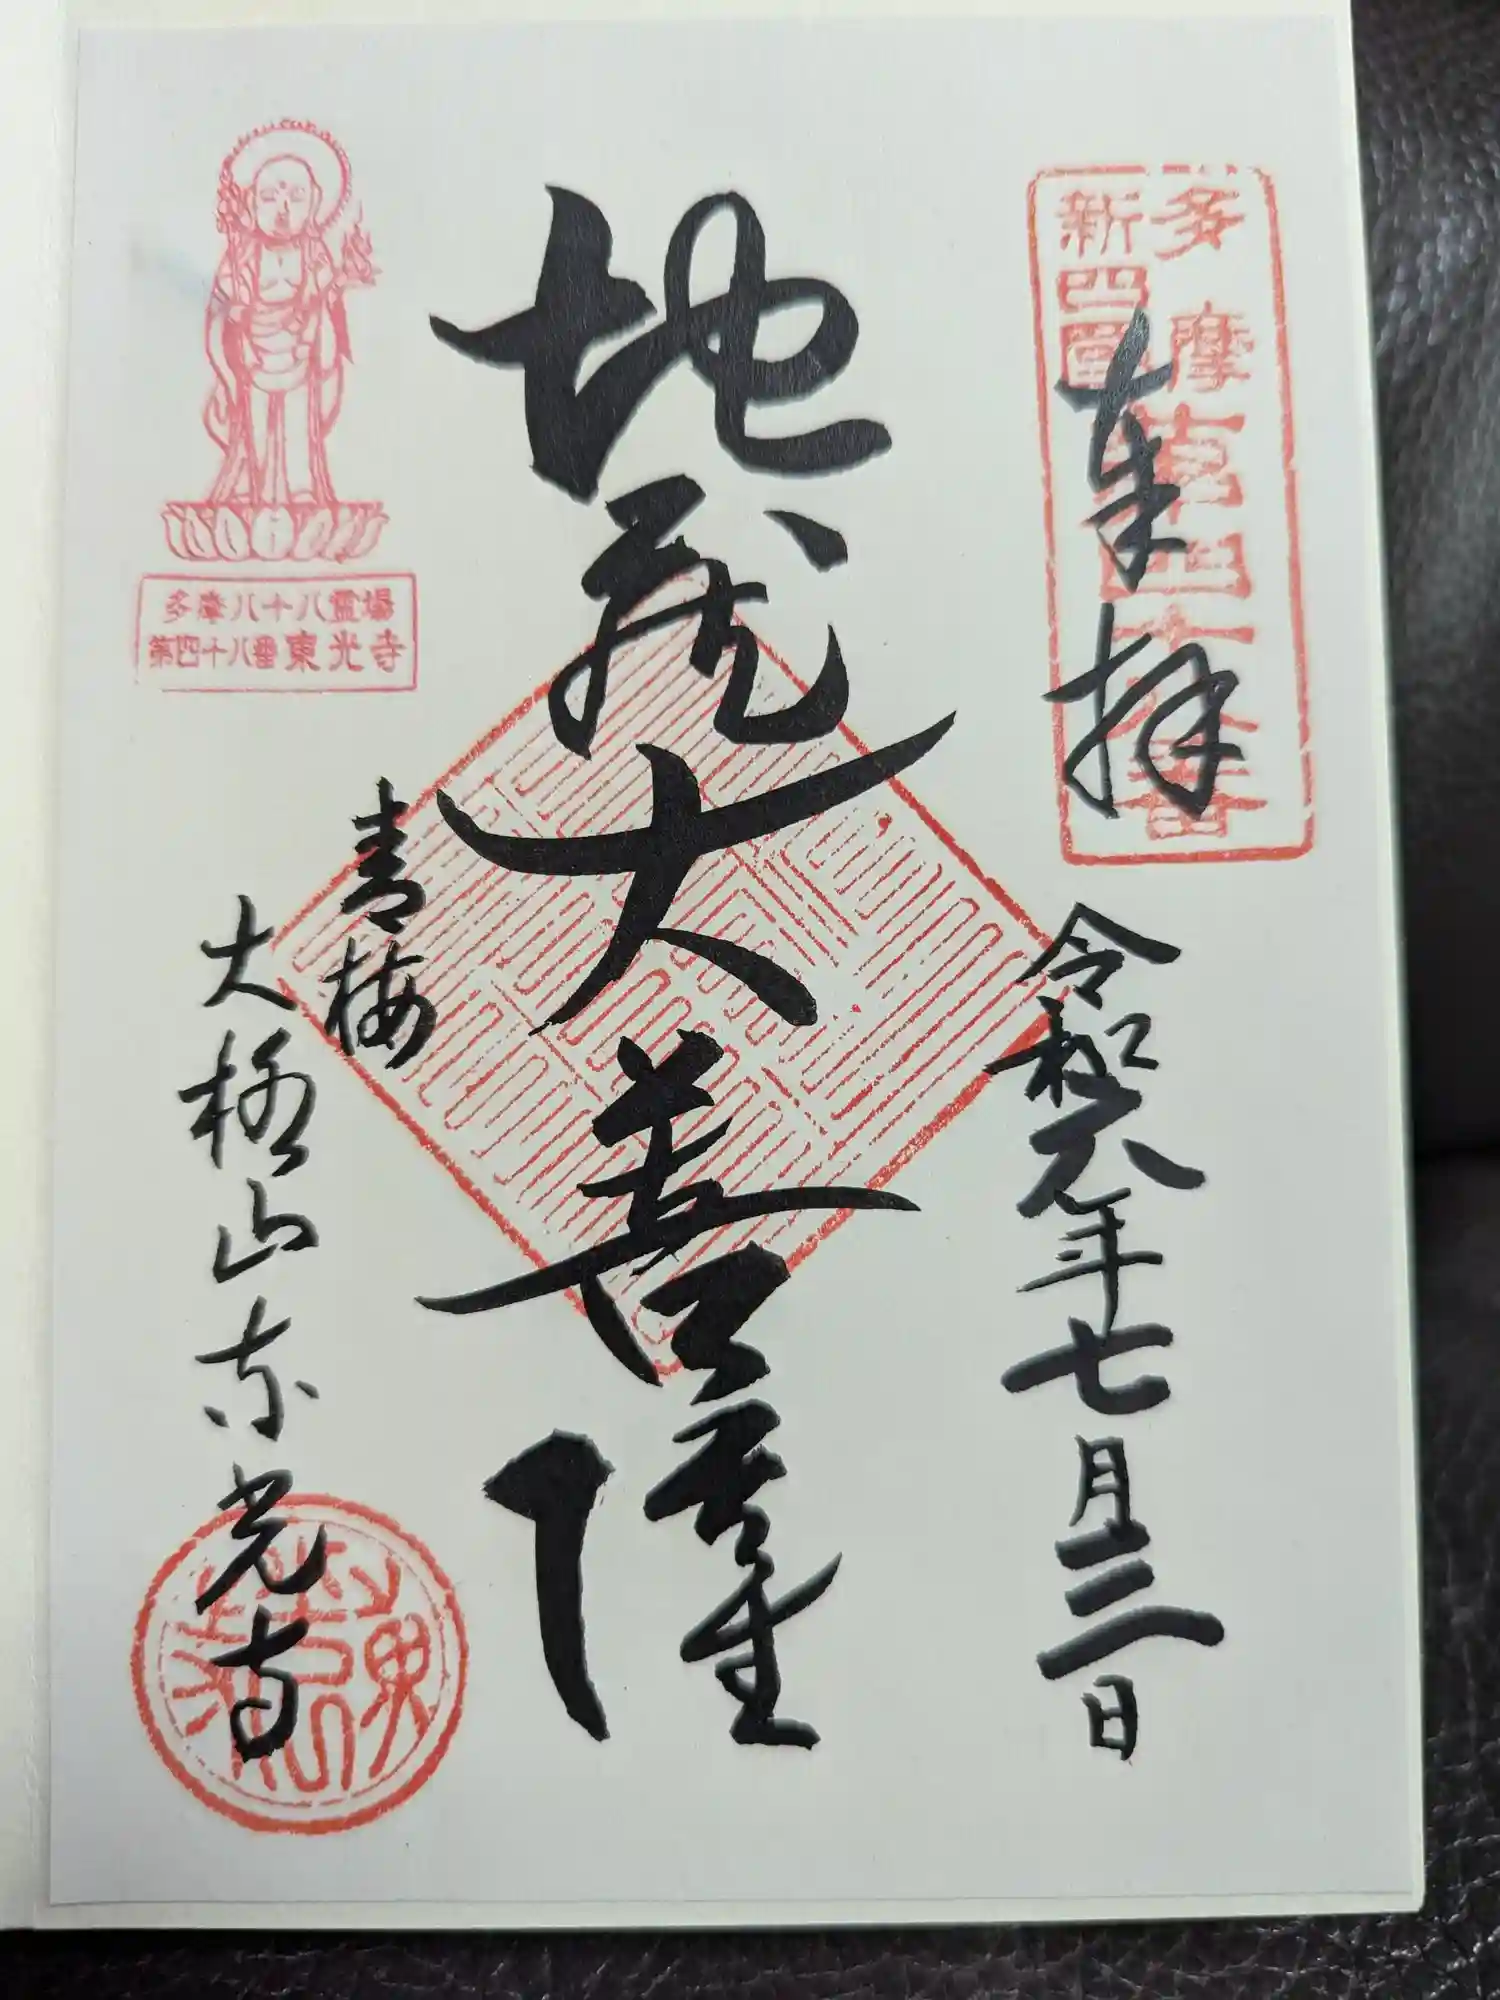 多摩
新四国
第四十八番
奉拝
令和六年七月三日
地蔵大菩薩
青梅
大極山東光寺
多摩八十八霊場
第四十八番東光寺